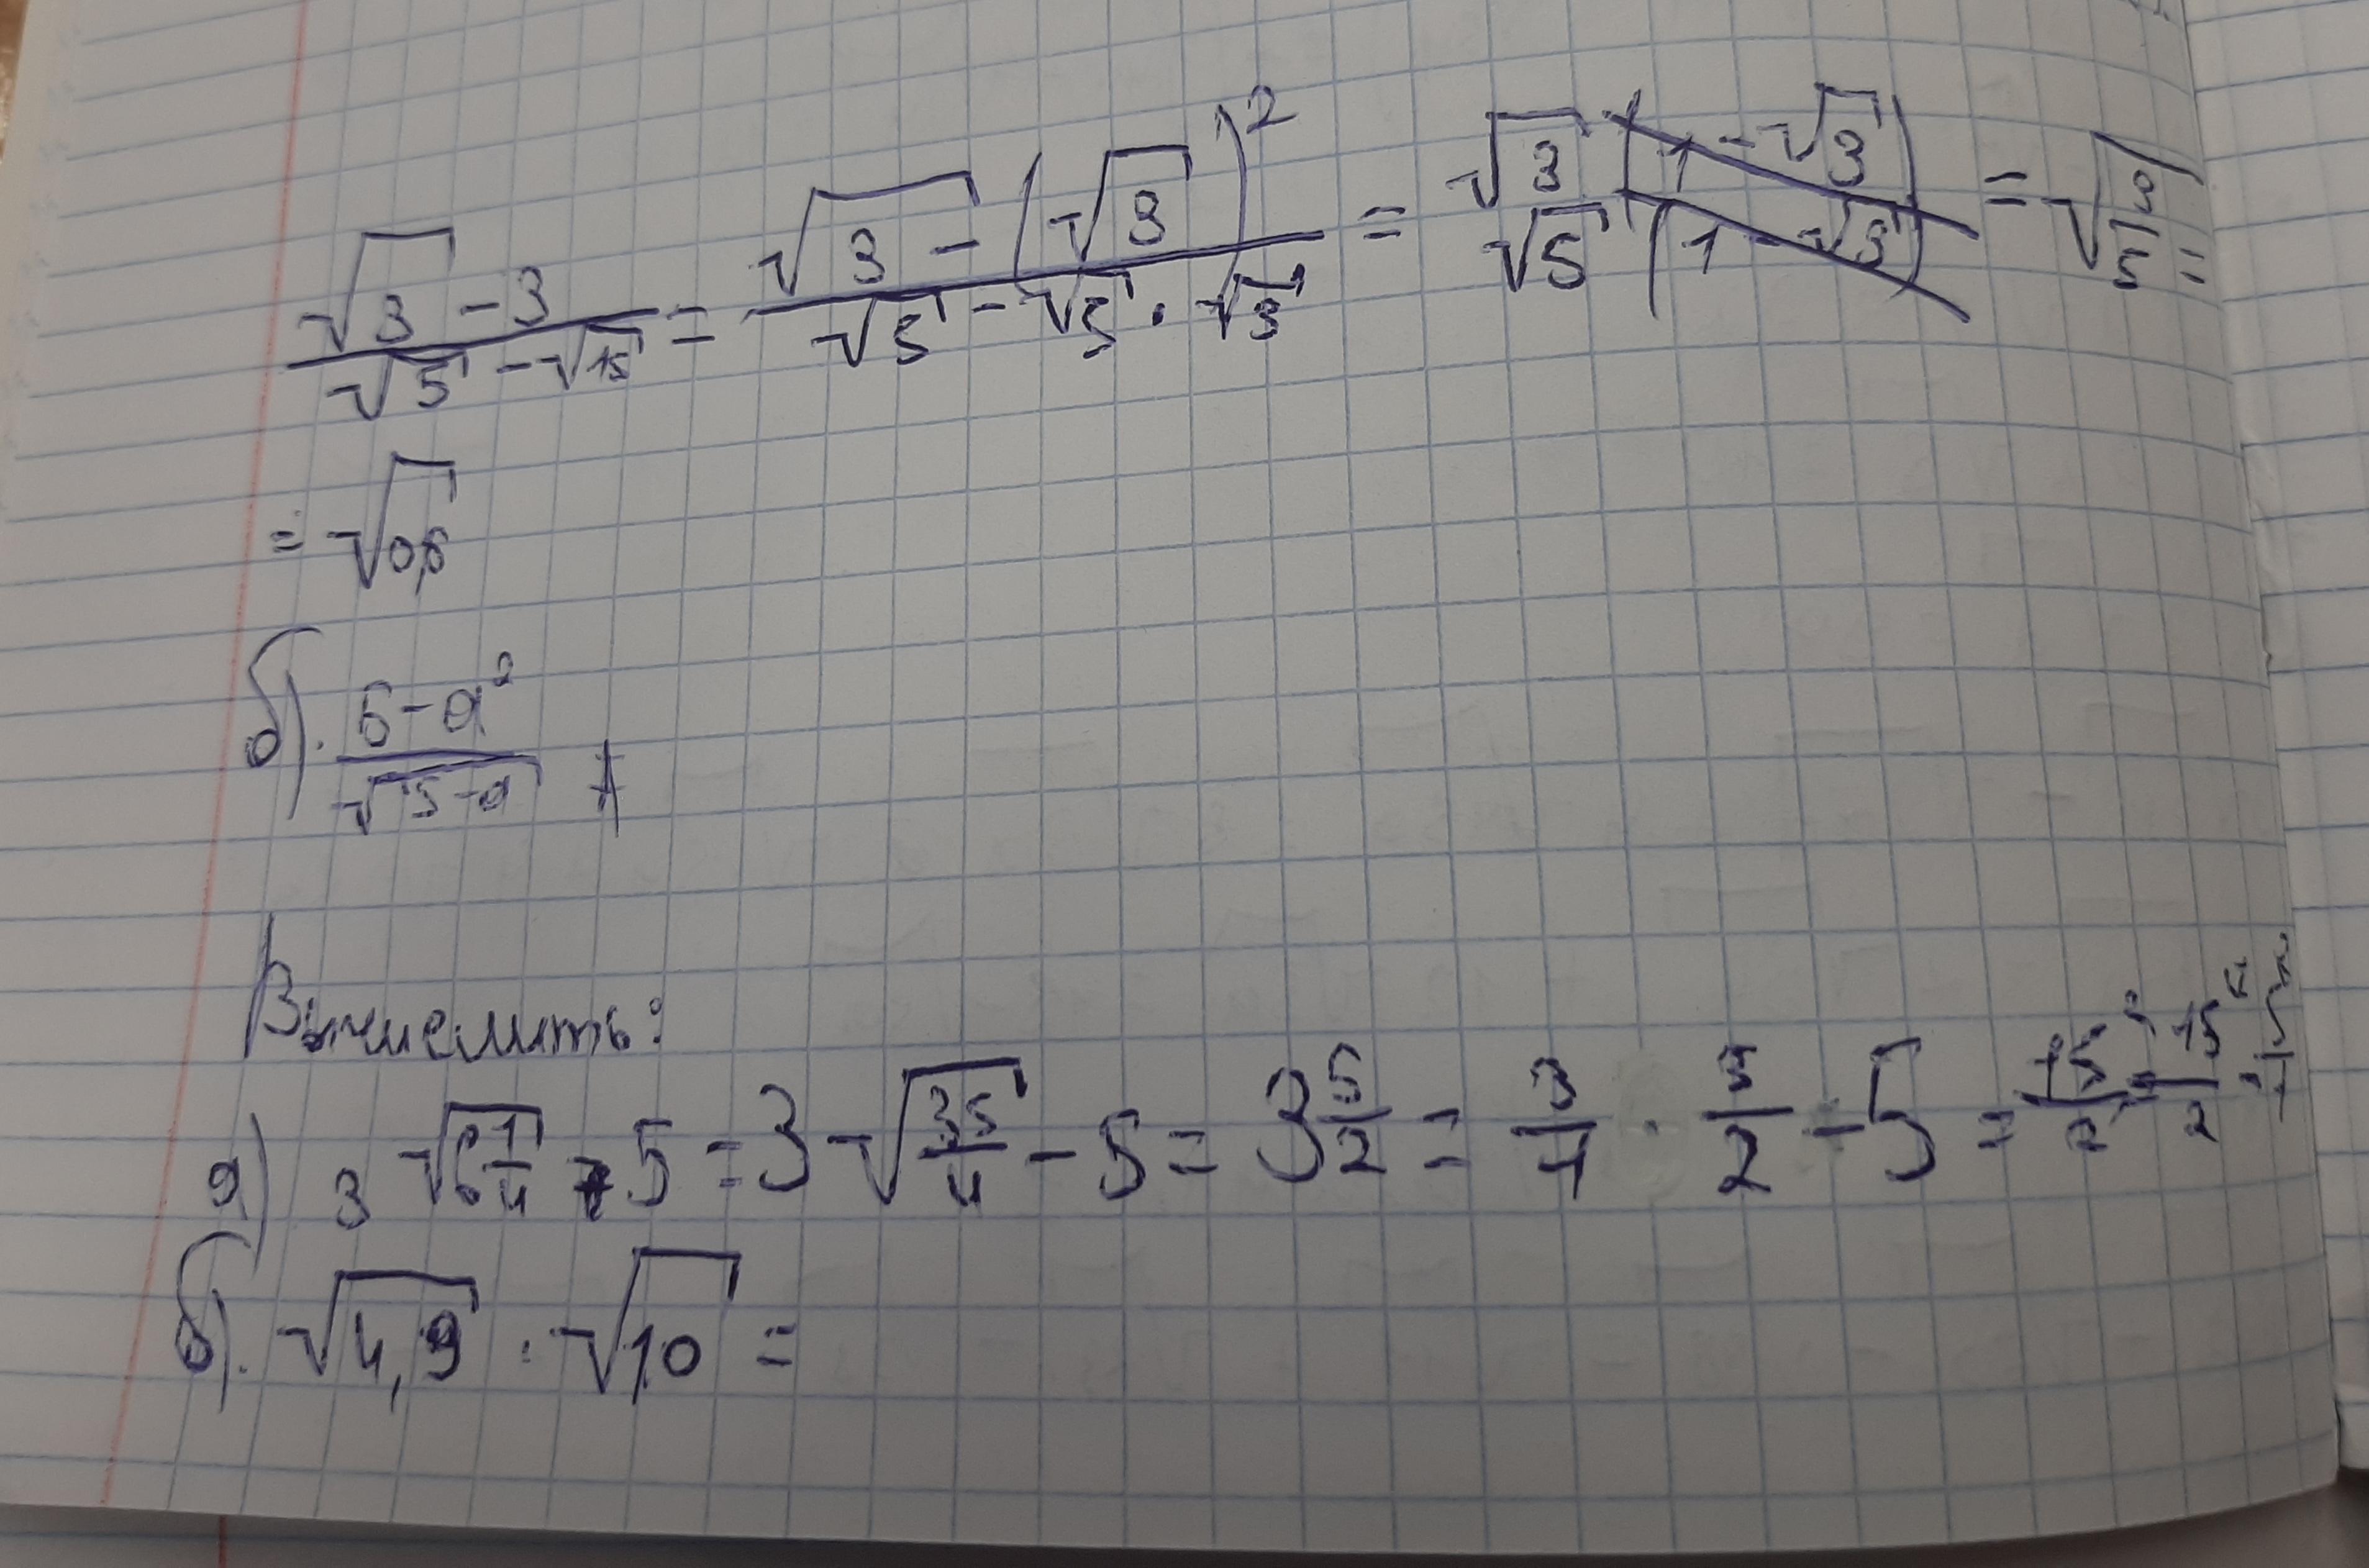 √3 - 3 / √5 - √15 = √3 - (√3)² / √5 - √5 · √3 = √3 (1 - √3) / √5 (1 - √3) = √3/5 =
= √0,6
б). 6 - a² / √5 - a
Вычислить:
а) 3 √6 1/4 - 5 = 3 √35/4 - 5 = 3 5/2 = 3/1 · 5/2 - 5 = 15/2 - 15/2
б). √4,9 · √10 =